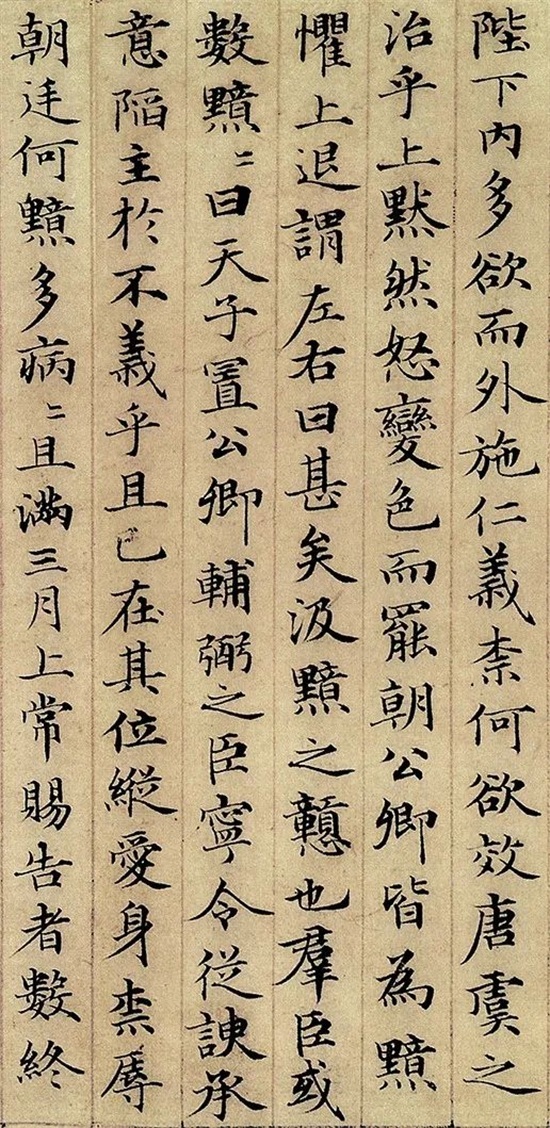 陛下内多欲而外施仁義柰何欲效唐虞之
治乎上黙然怒變色而罷朝公卿皆為黯
懼上退謂左右曰甚矣汲黯之戇也羣臣或
數黯〻曰天子置公卿輔弼之臣寧令從諛承
意陷主於不義乎且已在其位縱愛身柰辱
朝廷何黯多病〻且滿三月上常賜告者數終